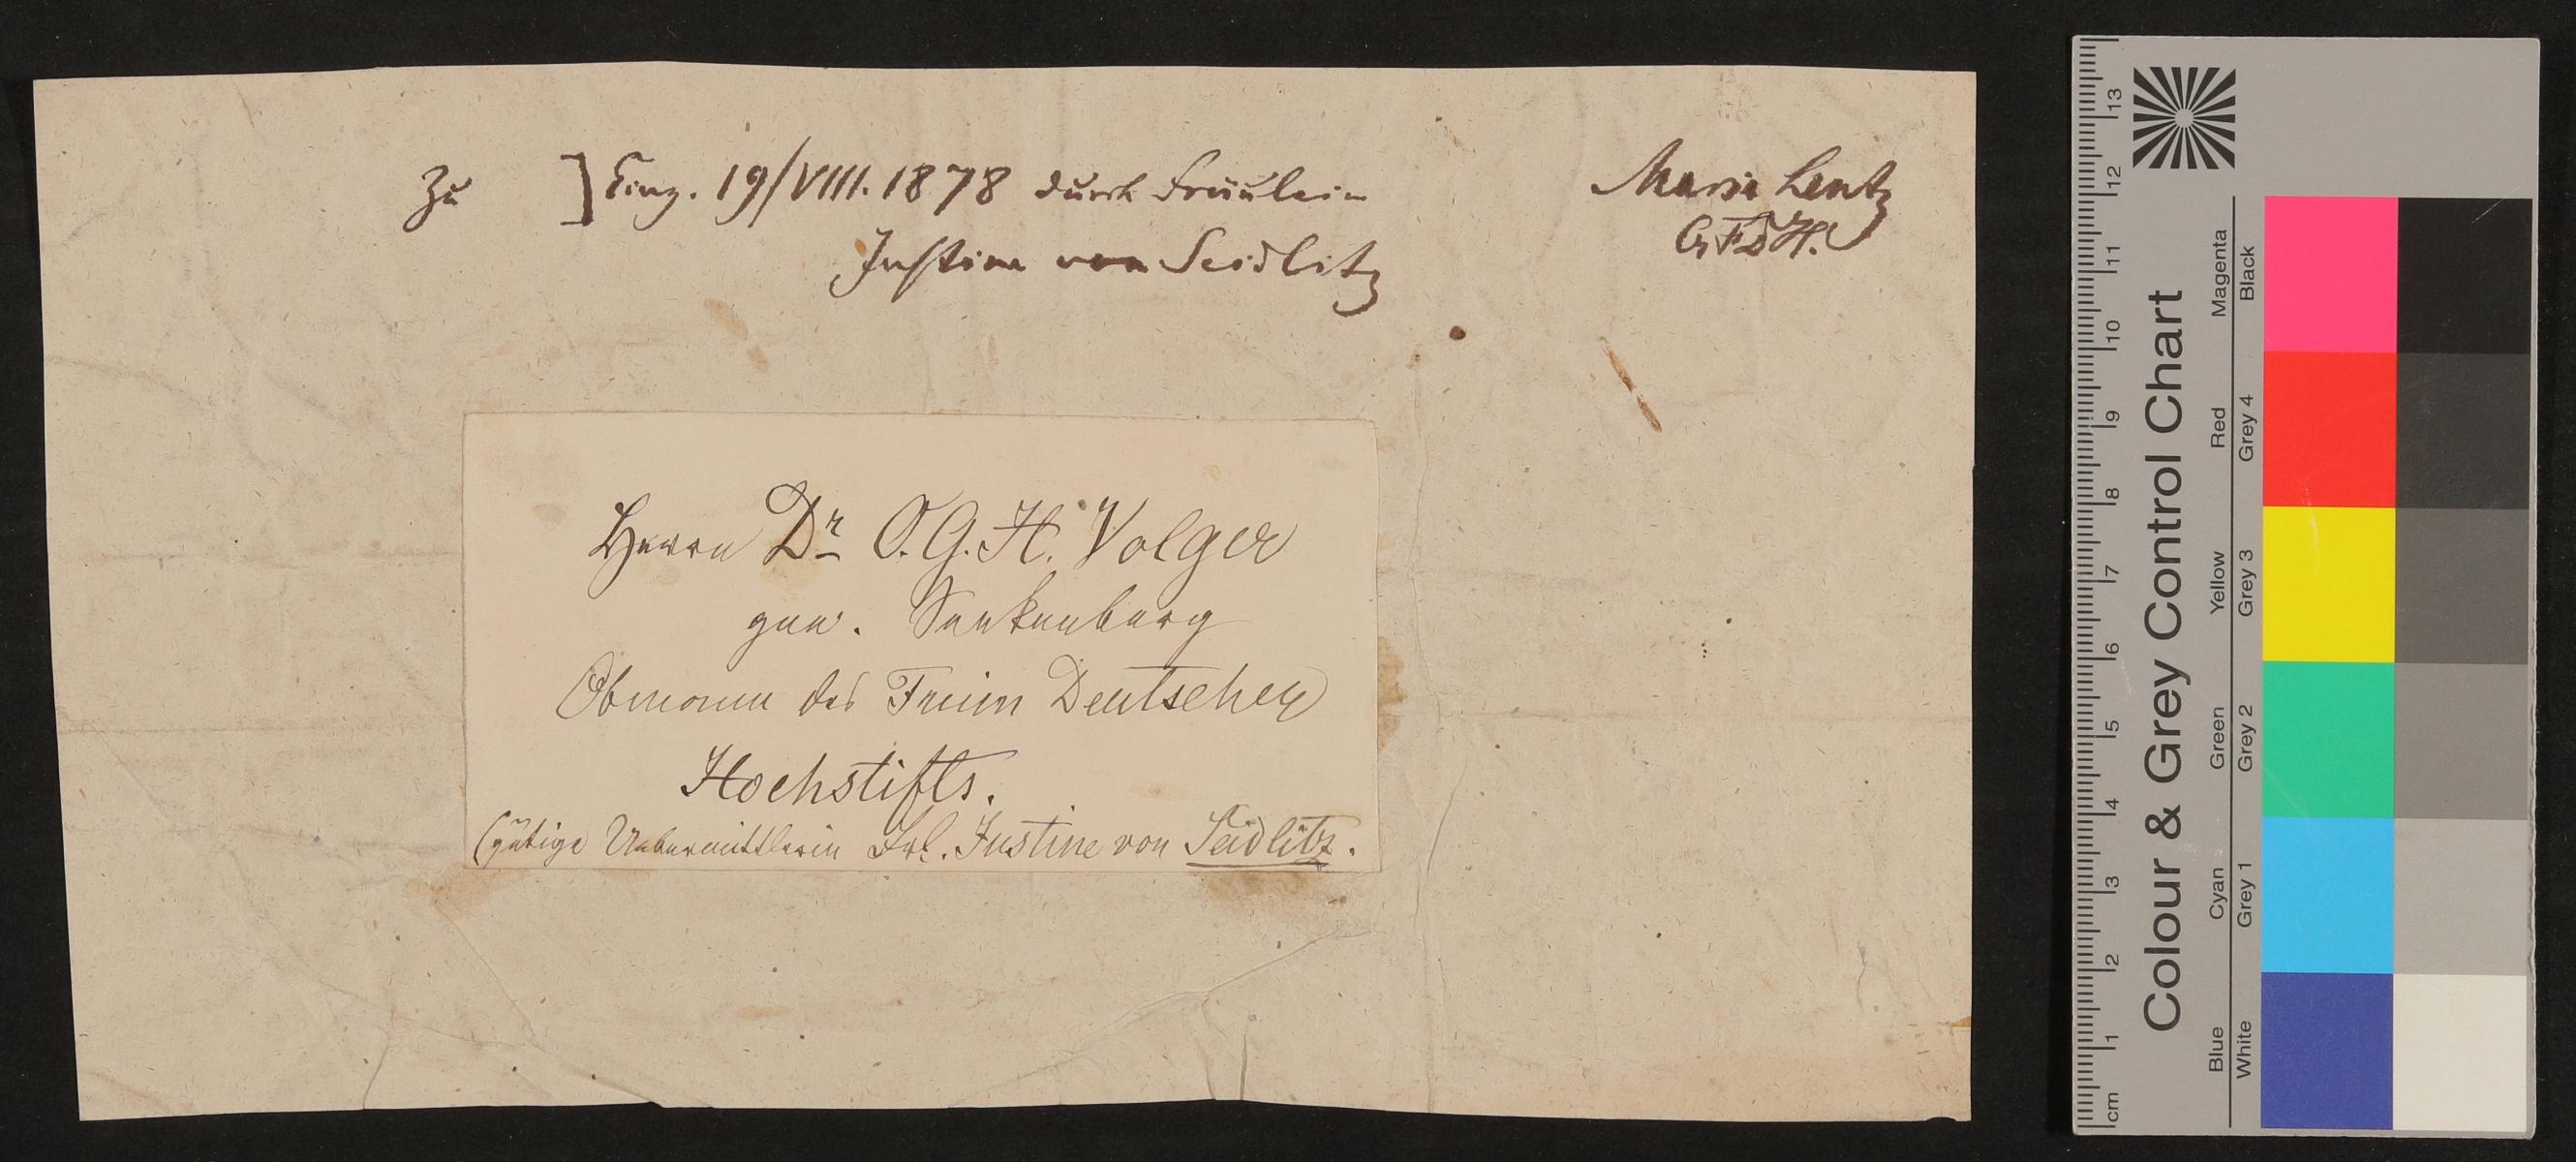 Zu ] Eing. 19/VIII. 1878 durch Fräulein
Justine von Seidlitz
Maria Lentz
G. F. D. H.
Herrn Dr. O. G. H. Volger
gen. Senkenberg
Obmann des Freien Deutschen
Hochstifts.
(gütige Uebermittlerin Frl. Justine von Seidlitz.
Colour & Grey Control Chart
Blue Cyan Green Yellow Red Magenta
White Grey 1 Grey 2 Grey 3 Grey 4 Black
cm 1 2 3 4 5 6 7 8 9 10 11 12 13